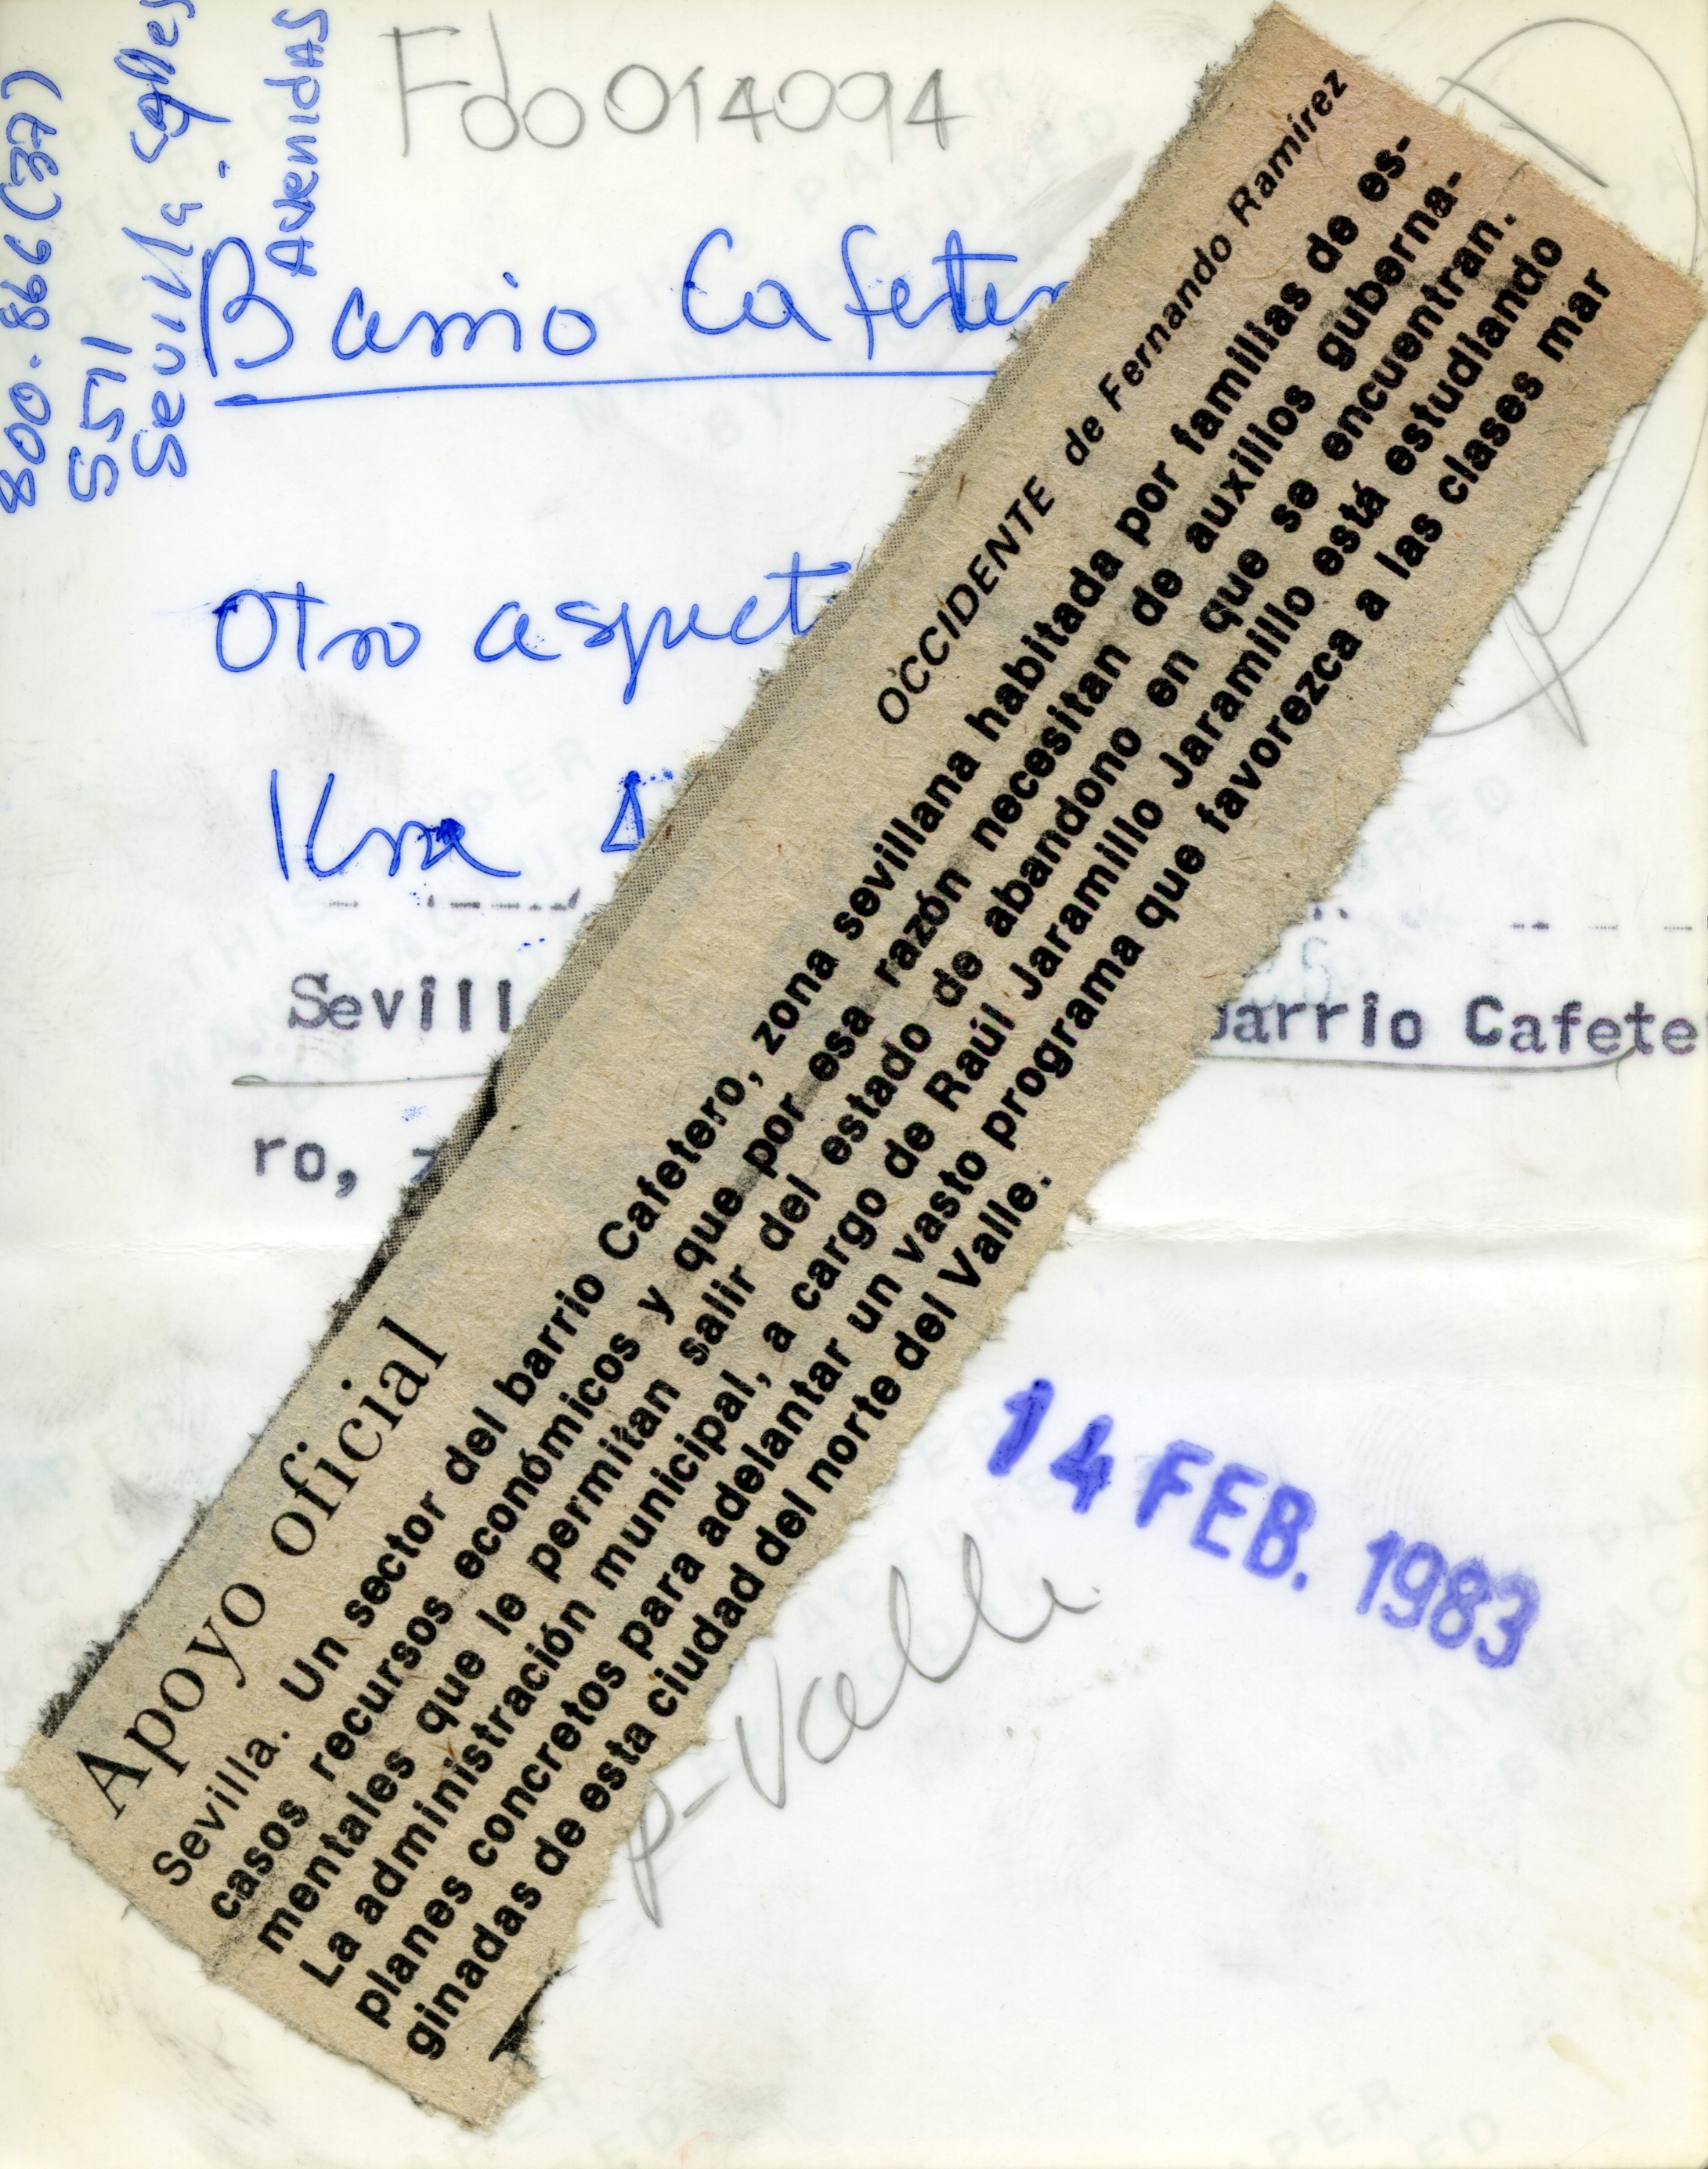 800.866(37)
5511
Sevilla. Calles
Avenidas
Fdo014094
Barrio Cafeter
Otro aspect
Kra
Sevill
barrio Cafete
ro, z
Apoyo oficial
OCCIDENTE de Fernando Ramírez
Sevilla. Un sector del barrio Cafetero, zona sevillana habitada por familias de es-
casos recursos económicos y que por esa razón necesitan de auxilios guberna-
mentales que le permitan salir del estado de abandono en que se encuentran.
La administración municipal, a cargo de Raúl Jaramillo Jaramillo está estudiando
planes concretos para adelantar un vasto programa que favorezca a las clases mar
ginadas de esta ciudad del norte del Valle.
14 FEB. 1983
P-Valle